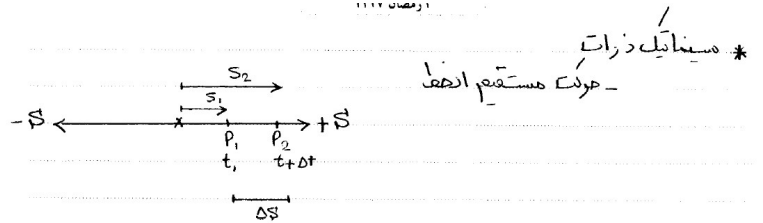 * سینماتیک ذرات
- حرکت مستقیم الخط
S₂
S₁
-S +S
P₁ P₂
t₁ t+Δt
ΔS